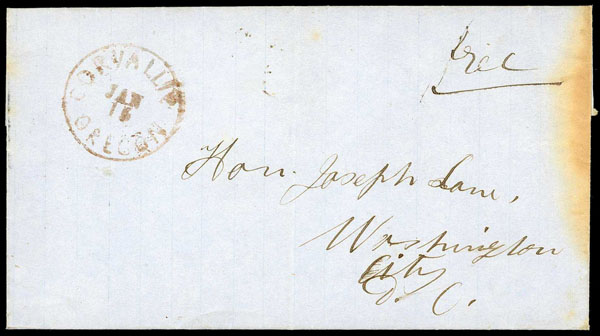 CORVALLIS
JAN
OREGON
free
Hon. Joseph Lane,
Washington
City
D. C.